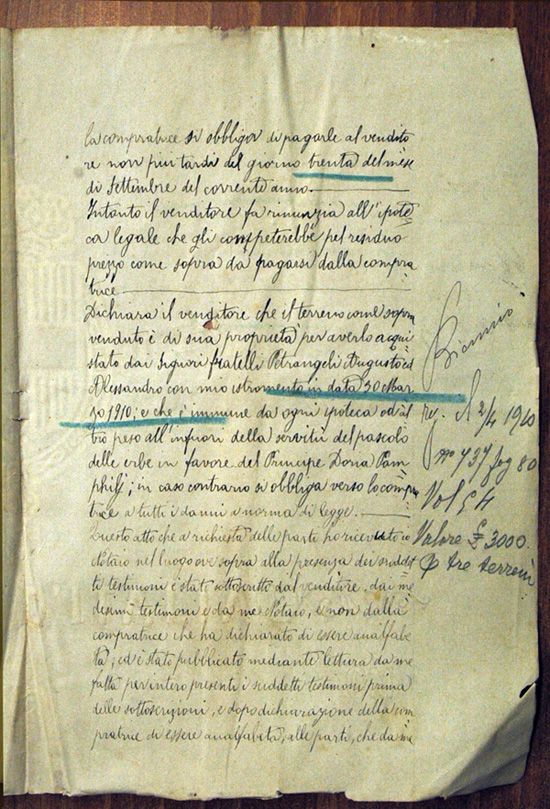 la compratrice si obbliga di pagarle al vendito
re non più tardi del giorno trenta del mese
di Settembre del corrente anno.
Intanto il venditore fa rinunzia all'ipote
ca legale che gli competerebbe pel residuo
prezzo come sopra da pagarsi dalla compra
trice
Dichiara il venditore che il terreno come sopra
venduto è di sua proprietà per averlo acqui
stato dai Signori fratelli Petrangeli Augusto ed
Alessandro con mio istromento in data 30 Mar
zo 1910; e che è immune da ogni ipoteca od al
tro peso all'infuori della servitù del pascolo
delle erbe in favore del Principe Doria Pam
phily; in caso contrario si obbliga verso la compra
trice a tutti i danni a norma di legge.
Questo atto che a richiesta delle parti ho ricevuto io
Notaro nel luogo ove sopra alla presenza dei suddet
ti testimoni è stato sottoscritto dal venditore, dai me
desimi testimoni e da me Notaio, e non dalla
compratrice che ha dichiarato di essere analfabe
ta; ed è stato pubblicato mediante lettura da me
fatta per intero presenti i suddetti testimoni prima
delle sottoscrizioni, e dopo dichiarazione della com
pratrice di essere analfabeta, alle parti, che da me
il 2/4 1910
n° 737 fog 80
Vol 54
Valore £ 3000
tre terreni